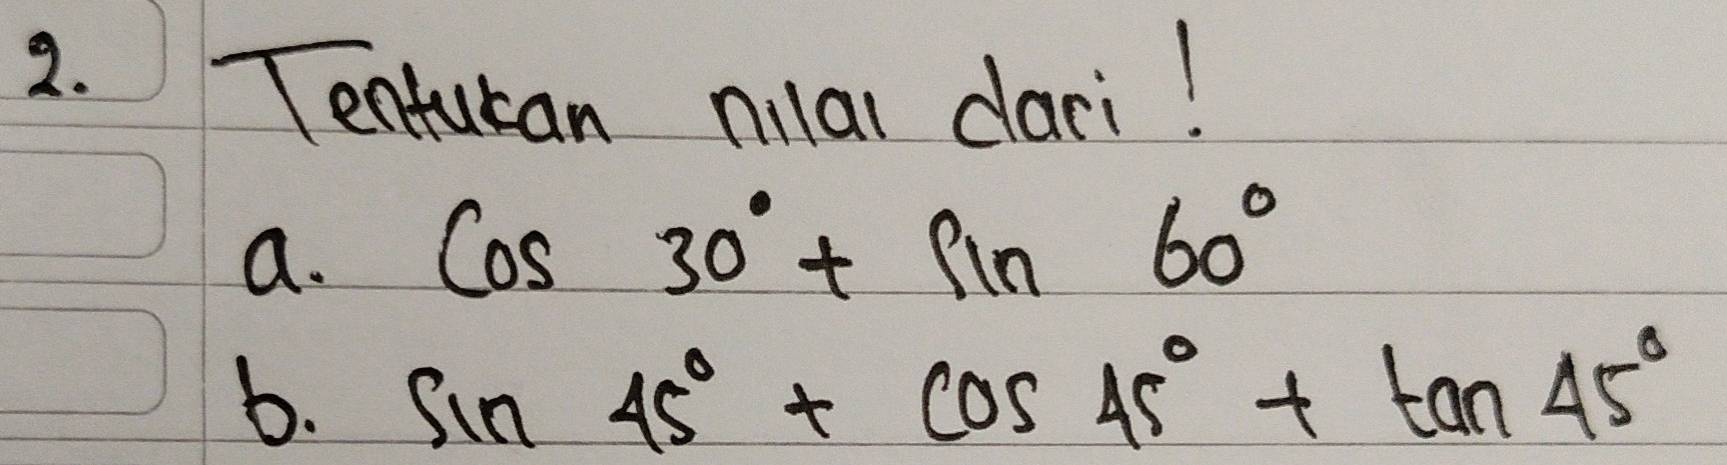 2. Tentukan nilai dari !
a. Cos 30° + Sin 60°
b. Sin 45° + cos 45° + tan 45°